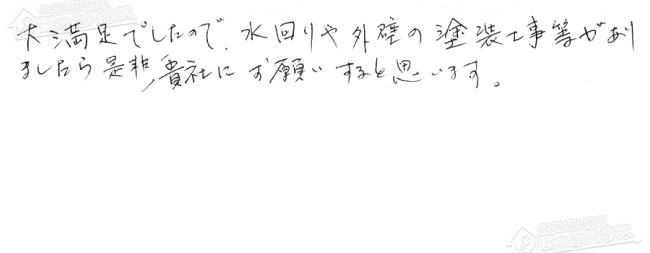 大満足でしたので、水回りや外壁の塗装工事等があり
ましたら是非、貴社にお願いすると思います。